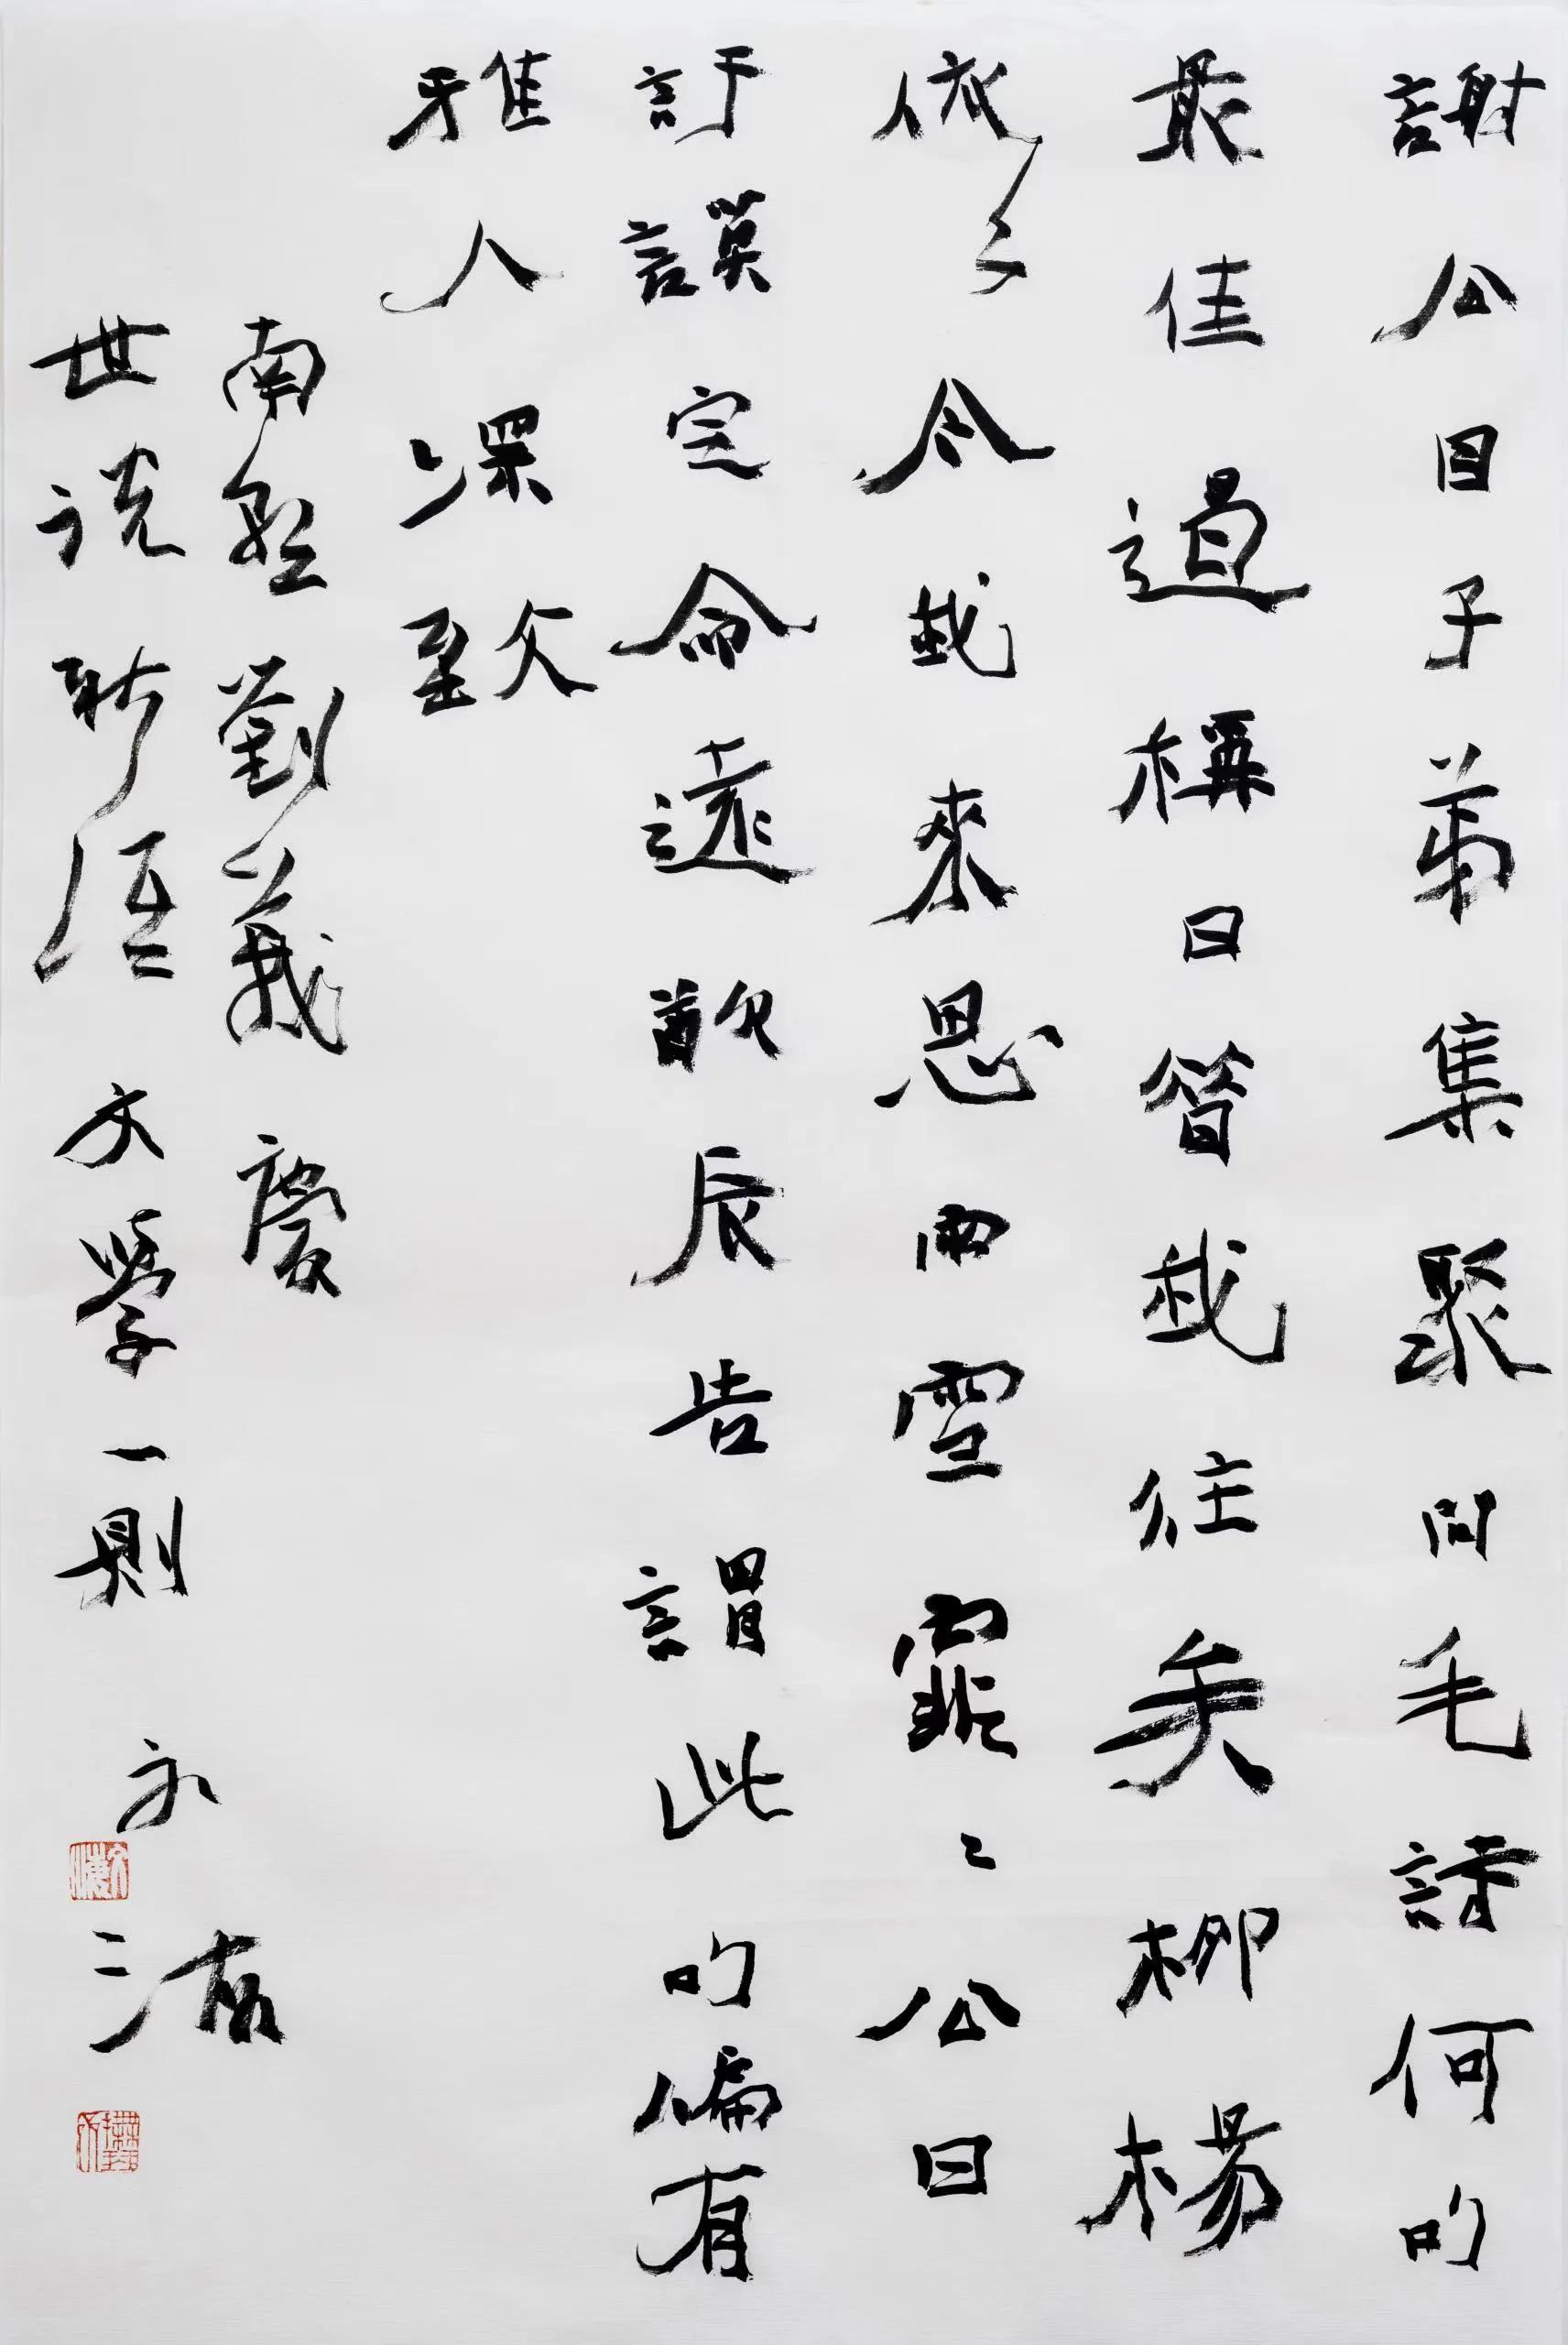 謝公因子弟集聚問毛詩何句
最佳遏稱曰昔我往矣柳楊
依々今我來思雨雪霏々公曰
訏謨定命遠猷辰告謂此句偏有
雅人深致
南劉義慶
世説新語文學一則